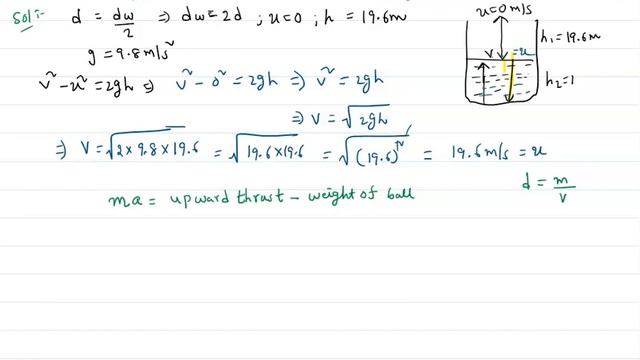 Sol:- d = dw/2 ⇒ dw = 2d ; u=0 ; h = 19.6m
g = 9.8 m/s²
v² - u² = 2gh ⇒ v² - 0² = 2gh ⇒ v² = 2gh
⇒ v = √2gh
⇒ V = √2 × 9.8 × 19.6 = √19.6×19.6 = √(19.6)² = 19.6 m/s = u
ma = upward thrust - weight of ball
d = m/v
u=0 m/s
h₁ = 19.6m
v = u
h₂ = ?